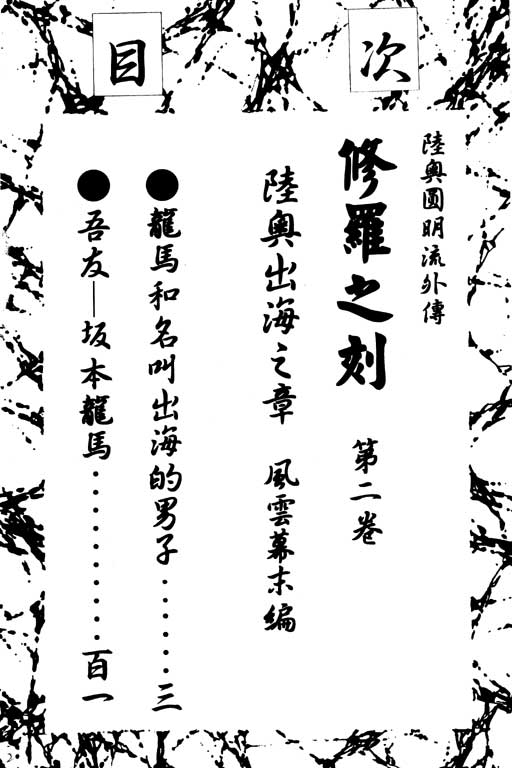 目次
陸奧圓明流外傳
修羅之刻 第二卷
陸奧出海之章 風雲幕末編
●龍馬和名叫出海的男子・・・・・・・三
●吾友—坂本龍馬・・・・・・・・・・・百一